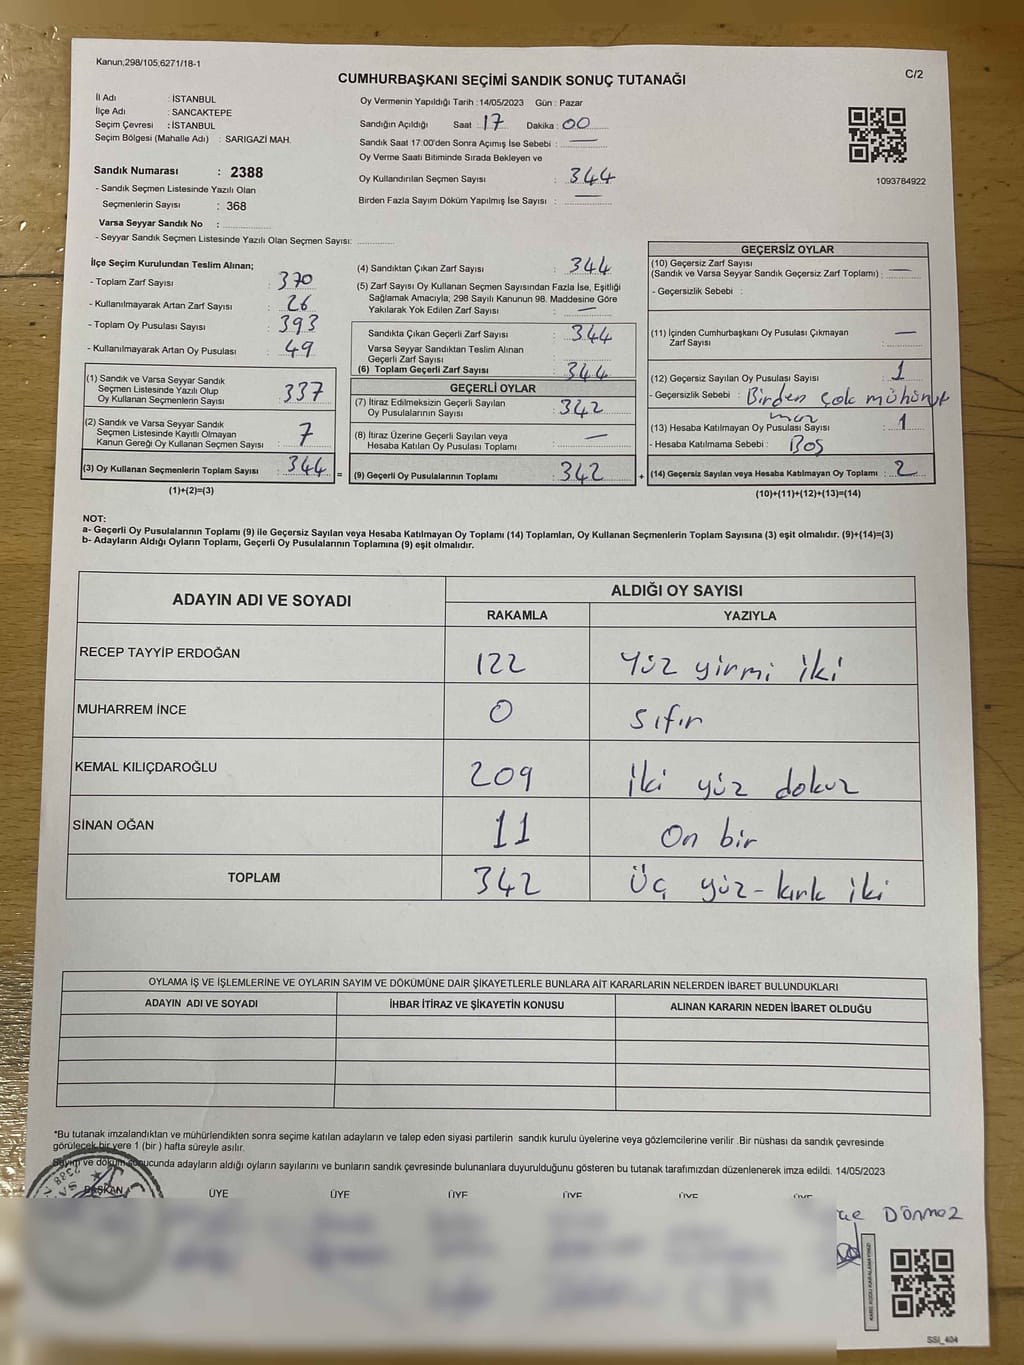 Kanun;298/105,6271/18-1
C/2
CUMHURBAŞKANI SEÇİMİ SANDIK SONUÇ TUTANAĞI
İl Adı : İSTANBUL
İlçe Adı : SANCAKTEPE
Seçim Çevresi : İSTANBUL
Seçim Bölgesi (Mahalle Adı) : SARIGAZİ MAH.
Sandık Numarası : 2388
- Sandık Seçmen Listesinde Yazılı Olan
Seçmenlerin Sayısı : 368
Varsa Seyyar Sandık No :
- Seyyar Sandık Seçmen Listesinde Yazılı Olan Seçmen Sayısı:
Oy Vermenin Yapıldığı Tarih : 14/05/2023 Gün : Pazar
Sandığın Açıldığı Saat : 17 Dakika : 00
Sandık Saat 17.00'den Sonra Açımış İse Sebebi : —
Oy Verme Saati Bitiminde Sırada Bekleyen ve
Oy Kullandırılan Seçmen Sayısı : 344
Birden Fazla Sayım Döküm Yapılmış İse Sayısı : —
1093784922
İlçe Seçim Kurulundan Teslim Alınan;
- Toplam Zarf Sayısı : 370
- Kullanılmayarak Artan Zarf Sayısı : 26
- Toplam Oy Pusulası Sayısı : 393
- Kullanılmayarak Artan Oy Pusulası : 49
(1) Sandık ve Varsa Seyyar Sandık
Seçmen Listesinde Yazılı Olup
Oy Kullanan Seçmenlerin Sayısı : 337
(2) Sandık ve Varsa Seyyar Sandık
Seçmen Listesinde Kayıtlı Olmayan
Kanun Gereği Oy Kullanan Seçmen Sayısı : 7
(3) Oy Kullanan Seçmenlerin Toplam Sayısı : 344 =
(1)+(2)=(3)
(4) Sandıktan Çıkan Zarf Sayısı : 344
(5) Zarf Sayısı Oy Kullanan Seçmen Sayısından Fazla İse, Eşitliği
Sağlamak Amacıyla, 298 Sayılı Kanunun 98. Maddesine Göre
Yakılarak Yok Edilen Zarf Sayısı : —
Sandıkta Çıkan Geçerli Zarf Sayısı : 344
Varsa Seyyar Sandıktan Teslim Alınan
Geçerli Zarf Sayısı :
(6) Toplam Geçerli Zarf Sayısı : 344
GEÇERLİ OYLAR
(7) İtiraz Edilmeksizin Geçerli Sayılan
Oy Pusulalarının Sayısı : 342
(8) İtiraz Üzerine Geçerli Sayılan veya
Hesaba Katılan Oy Pusulası Toplamı : —
(9) Geçerli Oy Pusulalarının Toplamı : 342 +
GEÇERSİZ OYLAR
(10) Geçersiz Zarf Sayısı
(Sandık ve Varsa Seyyar Sandık Geçersiz Zarf Toplamı) : —
- Geçersizlik Sebebi :
(11) İçinden Cumhurbaşkanı Oy Pusulası Çıkmayan
Zarf Sayısı : —
(12) Geçersiz Sayılan Oy Pusulası Sayısı : 1
- Geçersizlik Sebebi : Birden çok
(13) Hesaba Katılmayan Oy Pusulası Sayısı : 1
- Hesaba Katılmama Sebebi : Boş
(14) Geçersiz Sayılan veya Hesaba Katılmayan Oy Toplamı : 2
(10)+(11)+(12)+(13)=(14)
NOT:
a- Geçerli Oy Pusulalarının Toplamı (9) ile Geçersiz Sayılan veya Hesaba Katılmayan Oy Toplamı (14) Toplamları, Oy Kullanan Seçmenlerin Toplam Sayısına (3) eşit olmalıdır. (9)+(14)=(3)
b- Adayların Aldığı Oyların Toplamı, Geçerli Oy Pusulalarının Toplamına (9) eşit olmalıdır.
ADAYIN ADI VE SOYADI
ALDIĞI OY SAYISI
RAKAMLA YAZIYLA
RECEP TAYYİP ERDOĞAN 122 Yüz yirmi iki
MUHARREM İNCE 0 sıfır
KEMAL KILIÇDAROĞLU 209 iki yüz dokuz
SİNAN OĞAN 11 On bir
TOPLAM 342 Üç yüz - kırk iki
OYLAMA İŞ VE İŞLEMLERİNE VE OYLARIN SAYIM VE DÖKÜMÜNE DAİR ŞİKAYETLERLE BUNLARA AİT KARARLARIN NELERDEN İBARET BULUNDUKLARI
ADAYIN ADI VE SOYADI İHBAR İTİRAZ VE ŞİKAYETİN KONUSU ALINAN KARARIN NEDEN İBARET OLDUĞU
*Bu tutanak imzalandıktan ve mühürlendikten sonra seçime katılan adayların ve talep eden siyasi partilerin sandık kurulu üyelerine veya gözlemcilerine verilir .Bir nüshası da sandık çevresinde
görülecek bir yere 1 (bir ) hafta süreyle asılır.
Sayım ve döküm sonucunda adayların aldığı oyların sayılarını ve bunların sandık çevresinde bulunanlara duyurulduğunu gösteren bu tutanak tarafımızdan düzenlenerek imza edildi. 14/05/2023
BAŞKAN ÜYE ÜYE ÜYE ÜYE ÜYE ÜYE
Dönmez
SSI_404